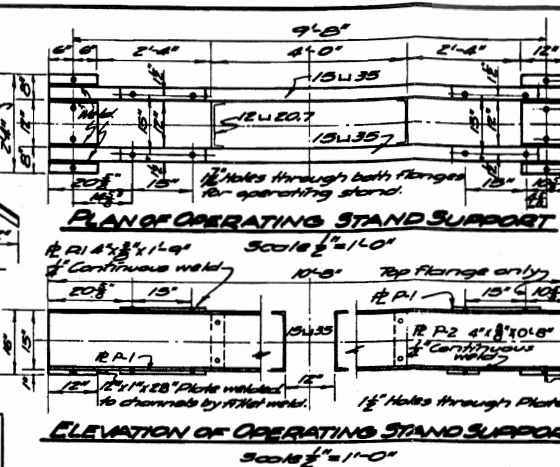 9'-8"
6" 6" 2'-4" 4'-0" 2'-4" 12"
15⊔35
12⊔20.7
15⊔35
24"
8"
12"
8"
15"
12"
15"
12"
Weld
20⅝" 15"
15"
Holes through both flanges
for operating stand.
PLAN OF OPERATING STAND SUPPORT
Scale ½"=1'-0"
1'-9"
Continuous weld
10'-8"
Top flange only
20⅝" 15"
15"
℞ P-1
℞ P-2 4"x⅜"x0'-8"
¼" Continuous
weld
15⊔35
16"
15"
1"
℞ P-1
12"
12"
12"x1"x28" Plate welded
to channels by fillet weld.
1½" Holes through Plat
ELEVATION OF OPERATING STAND SUPPO
Scale ½"=1'-0"